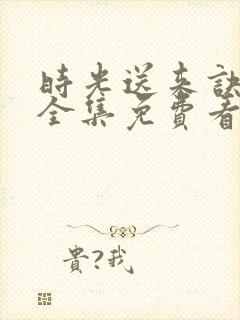 時光送来訣
全集免費看
貴?我